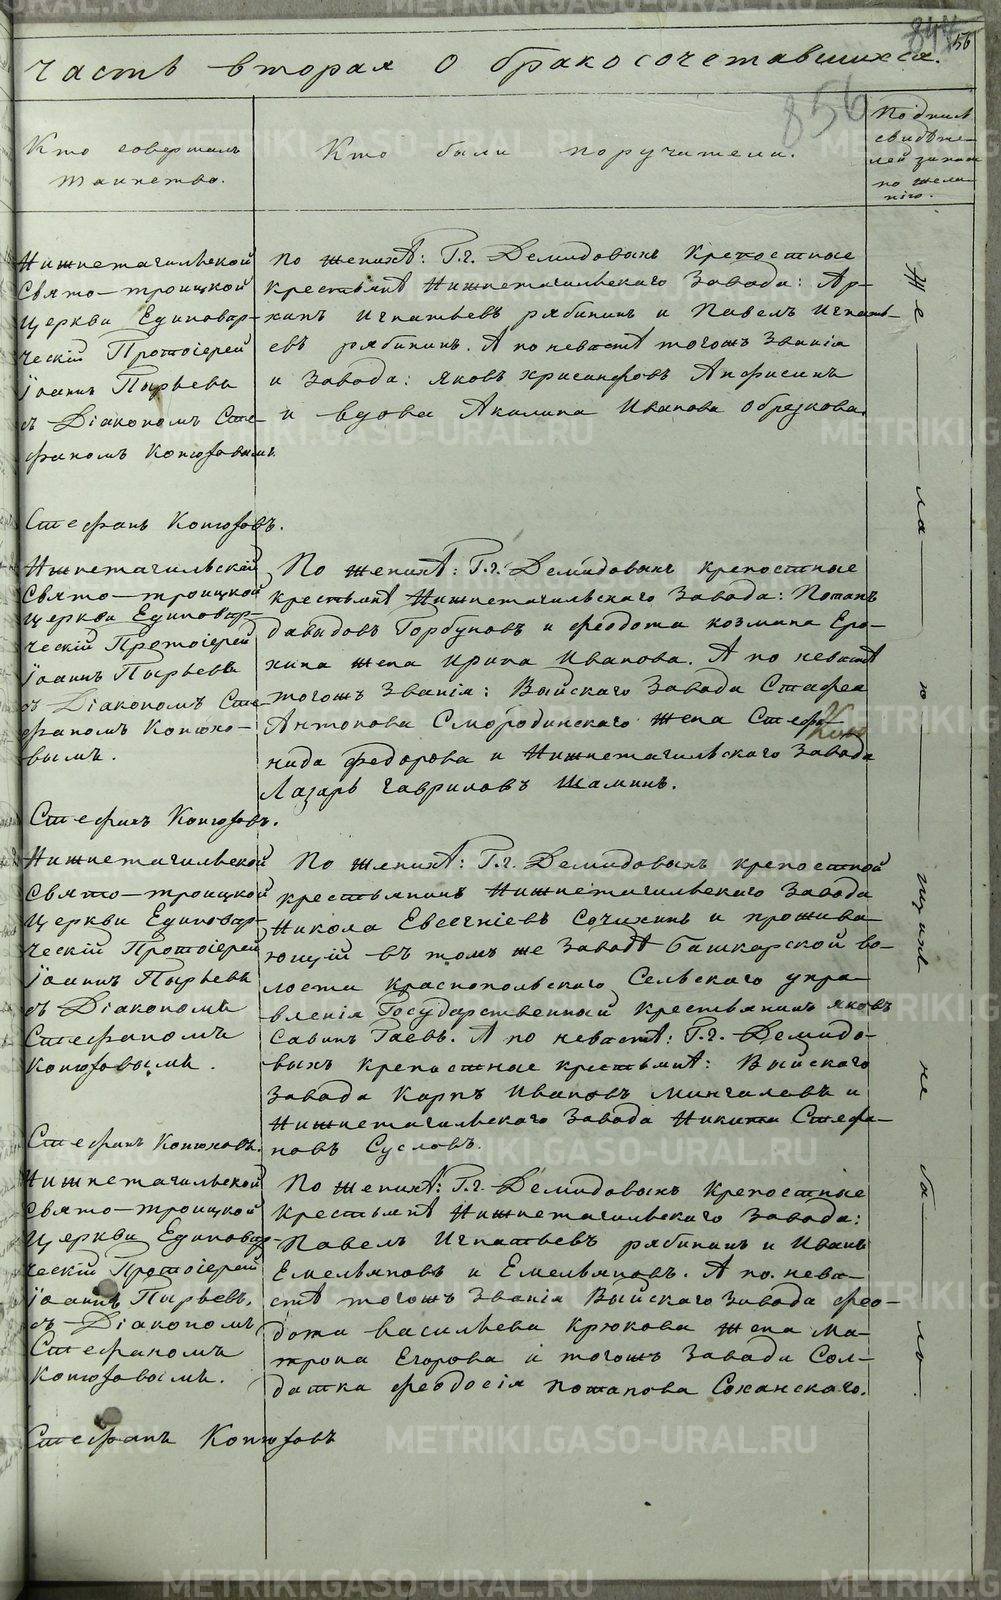 856
56
Часть вторая о бракосочетавшихся.
Кто совершалъ
таинство.
Кто были поручители.
Подпись
свидѣте-
лей записи
по жела-
нію.
Нижнетагильской
Свято-троицкой
Церкви Единовѣр-
ческій Протоіерей
Іоаннъ Пырьевъ
съ Діакономъ Сте-
фаномъ Конюховымъ.
Стефанъ Конюховъ.
по женихѣ: Г.г. Демидовыхъ Крепостные
крестьянѣ Нижнетагильскаго Завода: Ар-
хипъ Игнатьевъ рябининъ и Павелъ Игнать-
евъ рябининъ. А по невѣстѣ тогожъ Званія
и Завода: яковъ хрисанфовъ Анфисинъ
и вдова Акилина Иванова Образкова.
Нижнетагильскій
Свято-троицкой
Церкви Единовѣр-
ческій Протоіерей
Іоаннъ Пырьевъ
съ Діакономъ Сте-
фаномъ Конюхо-
вымъ.
Стефанъ Конюховъ.
По женихѣ: Г.г. Демидовыхъ крепостные
крестьянѣ Нижнетагильскаго Завода: Потапъ
давыдовъ Горбуновъ и феодота козмина Еро-
хина жена Ирина Иванова. А по невѣстѣ
тогожъ Званія: Выйскаго Завода
Антонова Смородинскаго жена Стефа-
нида федорова и Нижнетагильскаго Завода
Лазарь гавриловъ Шаминъ.
Нижнетагильской
Свято-троицкой
Церкви Единовѣр-
ческій Протоіерей
Іоаннъ Пырьевъ
съ Діакономъ
Стефаномъ
Конюховымъ.
Стефанъ Конюховъ.
По женихѣ: Г.г. Демидовыхъ крепостной
крестьянинъ Нижнетагильскаго Завода
Никола Евсегніевъ Сочихинъ и прожива-
ющій въ томъ же Заводѣ Башкарской во-
лости краснопольскаго Сельскаго упра-
вленія Государственной Крестьянинъ яковъ
Савинъ Гаевъ. А по невѣстѣ: Г.г. Демидо-
выхъ крепостные крестьянѣ: Выйскаго
Завода Карпъ Ивановъ Мингалевъ и
Нижнетагильскаго Завода Никита Стефа-
новъ Сусловъ.
Нижнетагильской
Свято-троицкой
Церкви Единовѣр-
ческій Протоіерей
Іоаннъ Пырьевъ,
съ Діакономъ
Стефаномъ
Конюховымъ.
Стефанъ Конюховъ
По женихѣ: Г.г. Демидовыхъ Крепостные
Крестьянѣ Нижнетагильскаго Завода:
Павелъ Игнатьевъ рябининъ и Иванъ
Емельяновъ и Емельяновъ. А по невѣ-
стѣ тогожъ Званія Выйскаго Завода фео-
дота васильева крюкова жена Ма-
трона Егорова и тогожъ Завода Сол-
датка феодосія потапова Соханскаго.
Же-ла-ю-щихъ не бы-ло.
METRIKI.GASO-URAL.RU